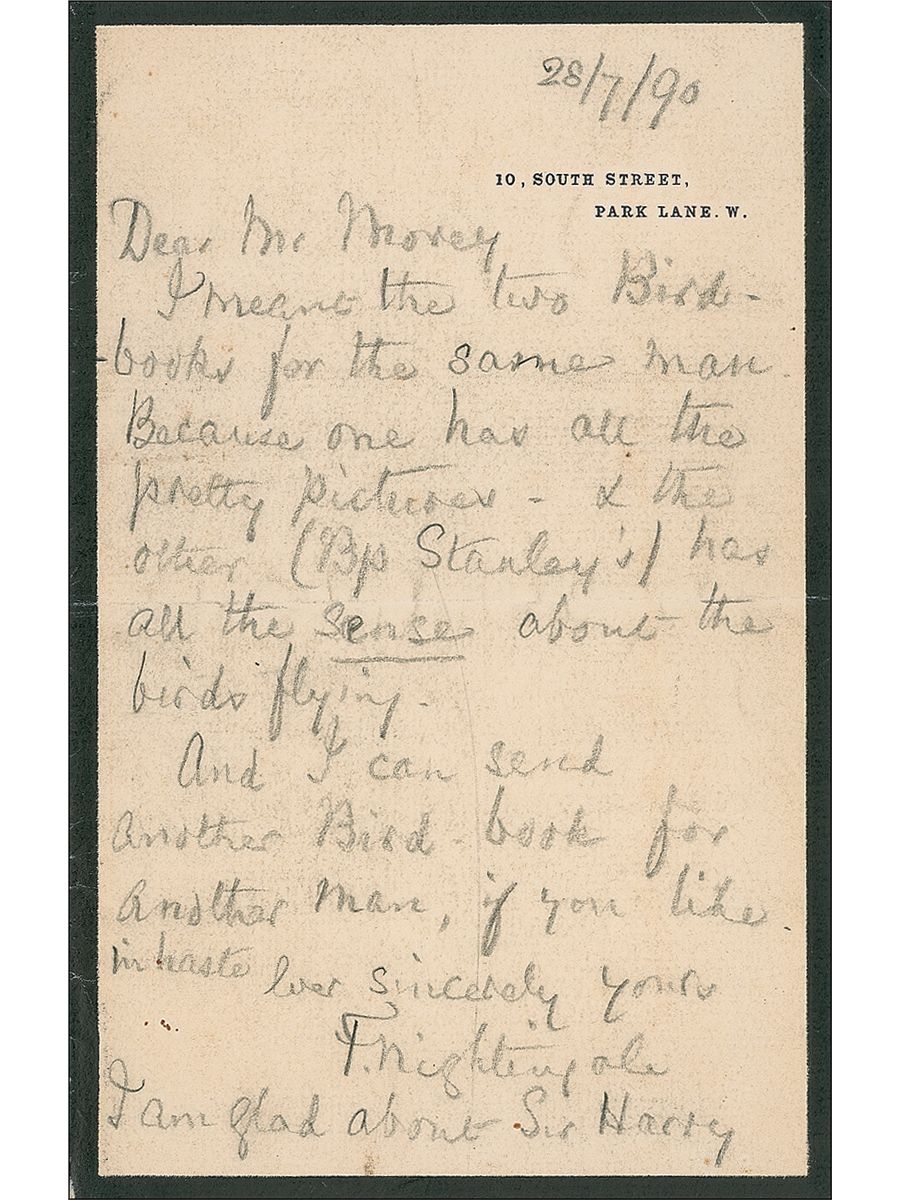 28/7/90
10, SOUTH STREET,
PARK LANE. W.
Dear Mr Morey
I meant the two Bird-
books for the same man.
Because one has all the
pretty pictures - & the
other (Bp Stanley's) has
all the sense about the
birds flying.
And I can send
another Bird-book for
another man, if you like
in haste
ever sincerely yours
F. Nightingale
I am glad about Sir Harry